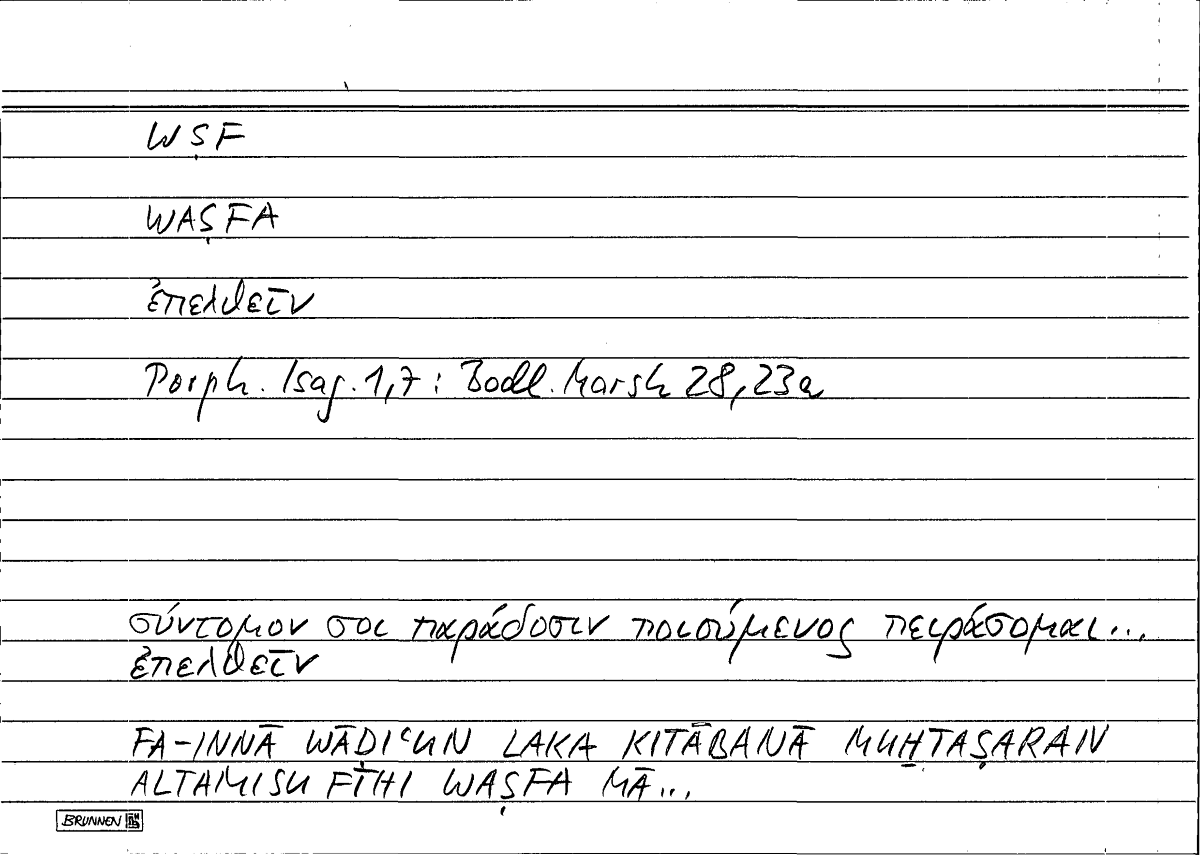 WṢF
WAṢFA
ἐπελθεῖν
Porph. Isag. 1,7 : Bodl. Marsh 28,23a
σύντομόν σοι παράδοσιν ποιούμενος πειράσομαι...
ἐπελθεῖν
FA-INNĀ WĀḌIʿUN LAKA KITĀBANĀ MUḪTAṢARAN
ALTAMISU FĪHI WAṢFA MĀ...
BRUNNEN